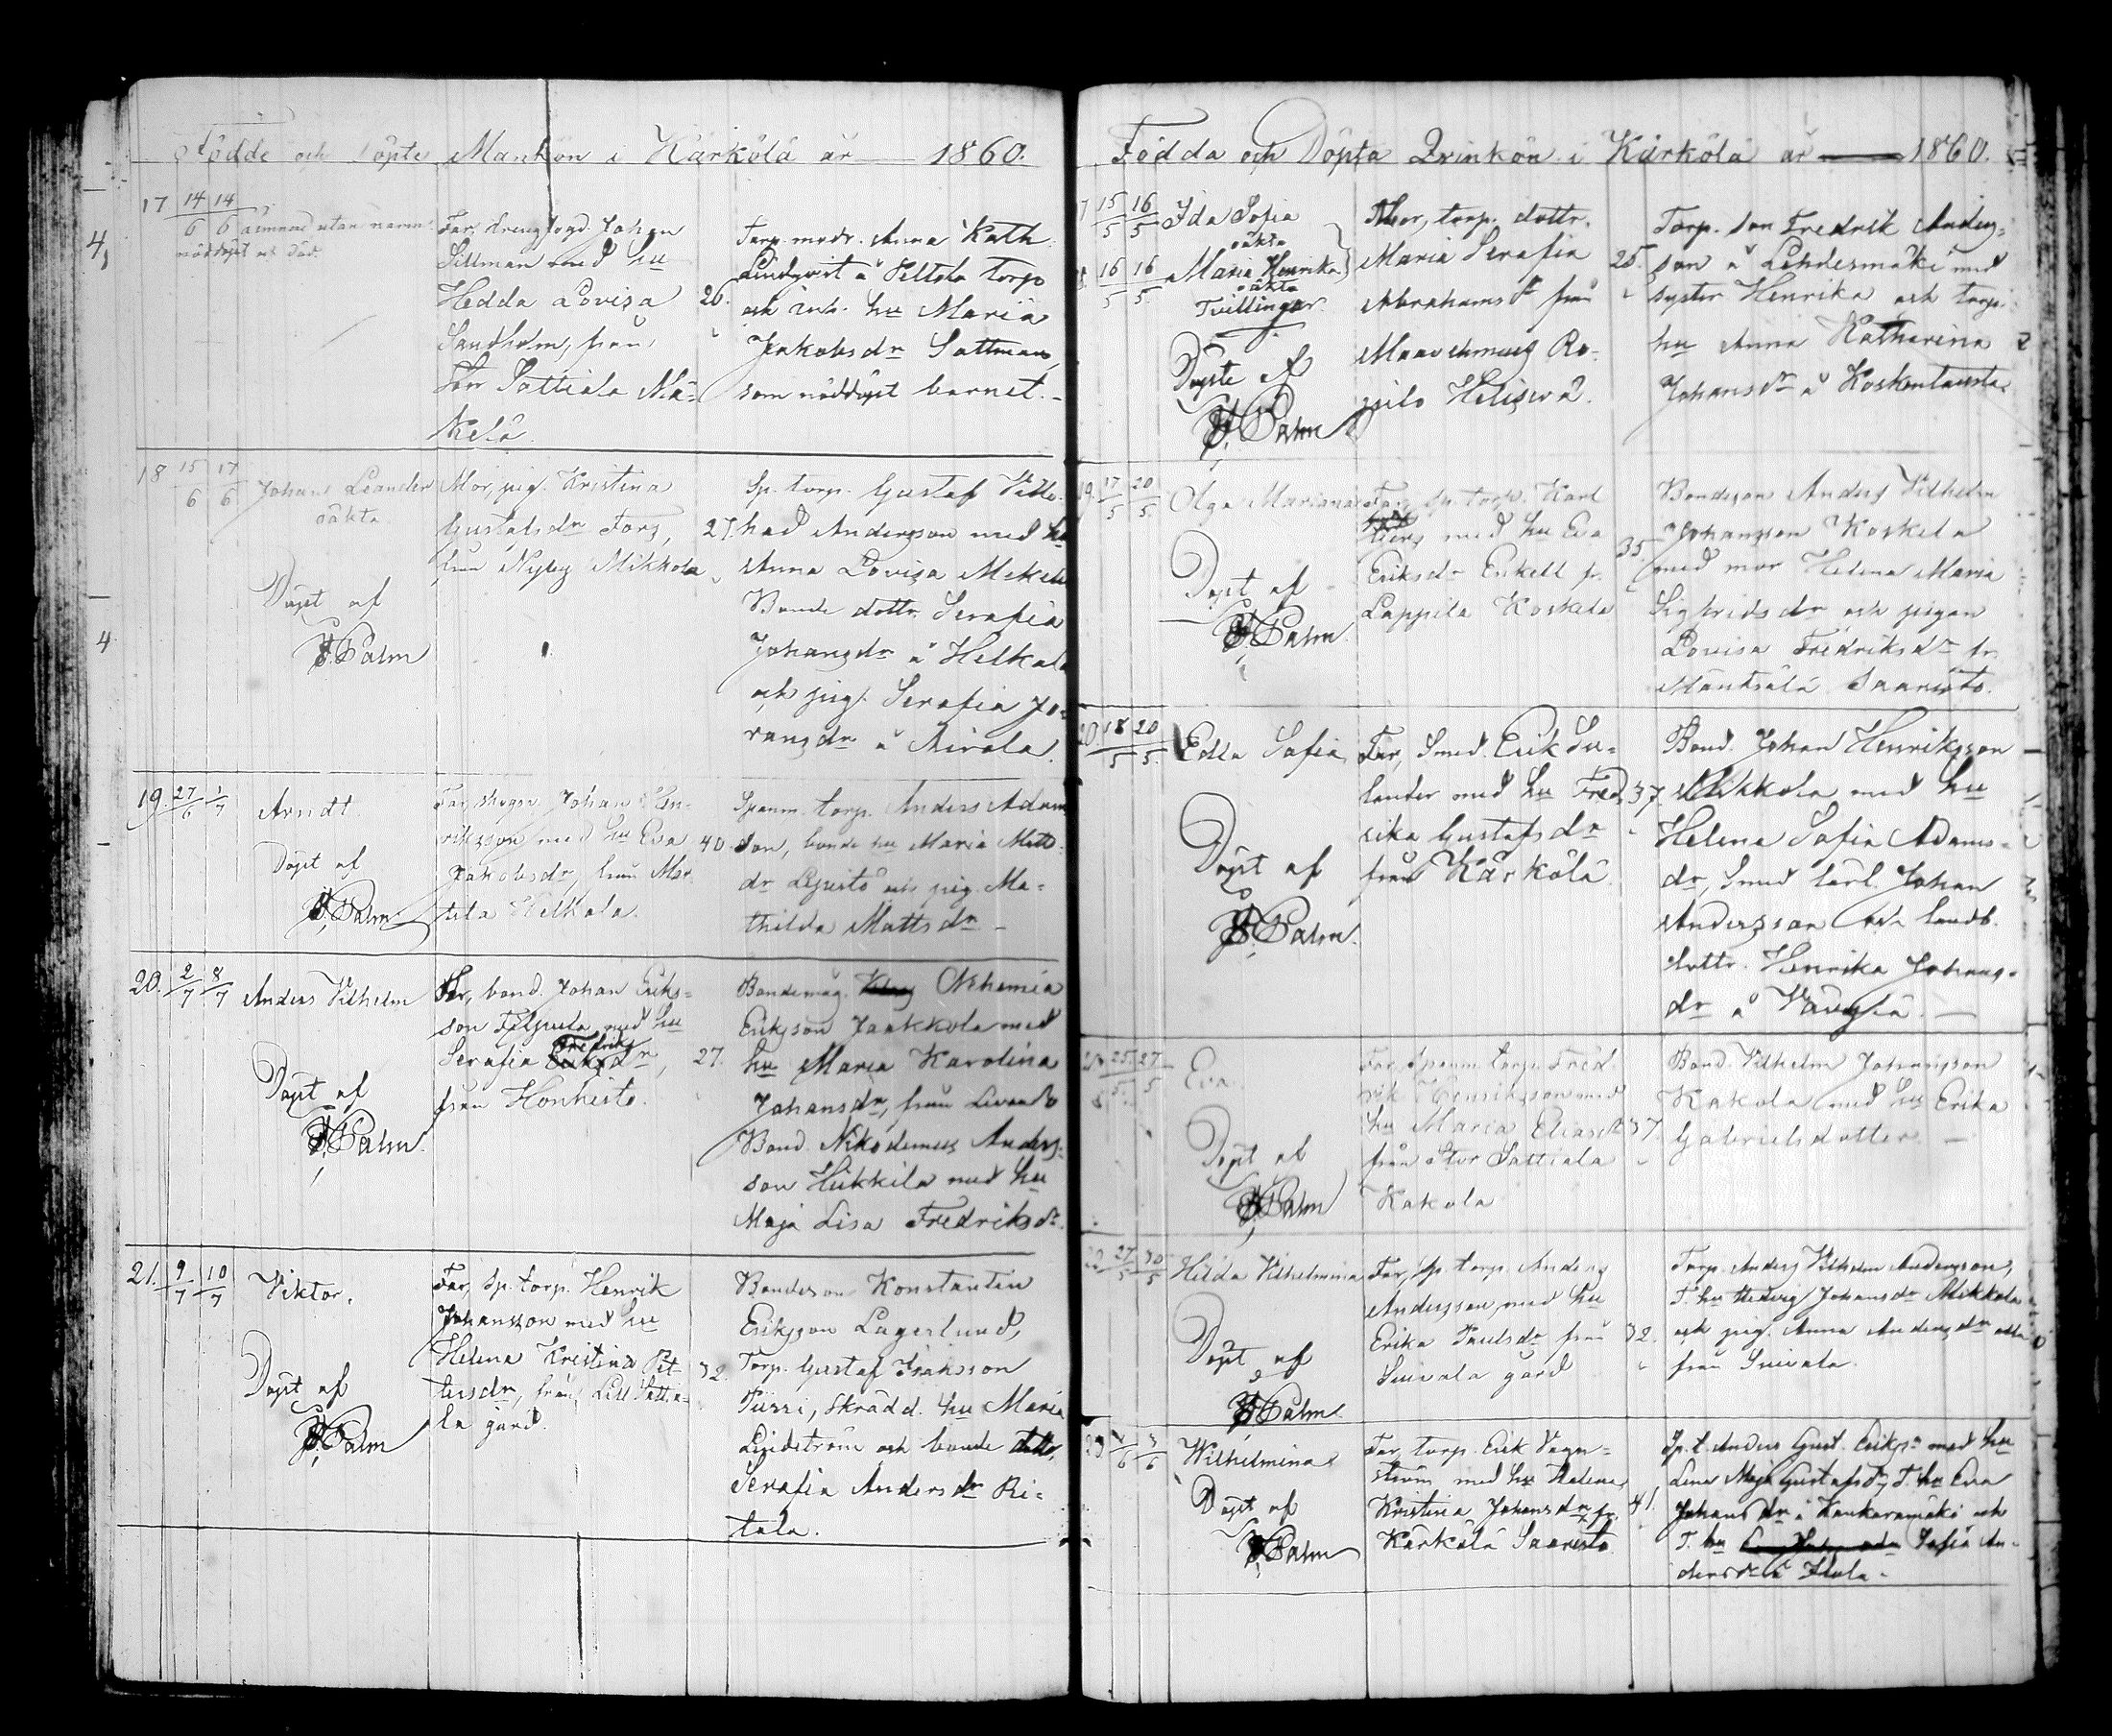 Födde och Döpte Mankön i Kärkölä år 1860.
17 14/6 14/6 utan namn
nöddöpt och död
Far, drengfogd. Johan
Sillman med hu
Hedda Lovisa 26.
Sandholm, från
Stor Sattiala Mä-
kelä.
Torp. modr. Anna Kath.
Lindqvist å Siltola torp
och inh. hu Maria
Jakobsdr Sattman,
som nöddöpt barnet.
18 15/6 17/6 Johan Leander
oäkta
Döpt af
Palm
Mor, pig. Kristina
Gustafsdr Fors, 27.
från Nyby Mikkola
Sp. torp. Gustaf
had Andersson med hu
Anna Lovisa
Bonde dottr. Serafia
Johansdr å Helkala
och pig. Serafia Jo-
hansdr å Airola.
19. 27/6 1/7 Arndt
Döpt af
Palm
Far, Johan Hen-
riksson med hu Eva 40.
Jakobsdr, från Mar-
tila Helkala.
Spanm. torp. Anders Adam
son, bonde hu Maria Matts
dr och pig. Ma-
thilda Mattsdr
20. 2/7 8/7 Anders Vilhelm
Döpt af
Palm
Far, bond. Johan Eriks-
son med hu
Serafia Fredriksdr, 27.
från Honkisto.
Bondemåg. Nehemia
Eriksson Jaakkola med
hu Maria Karolina
Johansdr, från
Bond. Nikodemus Anders-
son Heikkilä med hu
Maja Lisa Fredriksdr.
21. 9/7 10/7 Viktor.
Döpt af
Palm
Far, sp. torp. Henrik
Johansson med hu
Helena Kristina Pet- 32.
tersdr, från Lill Sattia-
la gård.
Bondeson Konstantin
Eriksson Lagerlund,
Torp. Gustaf Isaksson
skrädd. hu Maria
Lindström och bonde dottr.
Serafia Andersdr Ri-
tala.
Födda och Döpta Qvinkön i Kärkölä år 1860.
15/5 16/5 Ida Sofia
oäkta
16/5 16/5 Maria Henrika
oäkta
Tvillingar.
Döpte af
Palm
Mor, torp. dottr.
Maria Serafia 25.
Abrahamsdr från
Helisevä.
Torp. son Fredrik Anders-
son å Lehdesmäki med
syster Henrika och torp.
hu Anna Katharina
Johansdr å Koskentausta.
19. 17/5 20/5 Olga Mariana
Döpt af
Palm
Far, sp. torp. Karl
med hu Eva 35.
Eriksdr Enkell fr.
Lappila Koskela
Bondeson Anders Vilhelm
Johansson Koskela
med mor Helena Maria
Sigfridsdr och pigan
Lovisa Fredriksdr fr.
Mäntsälä Saaristo.
20. 18/5 20/5 Edla Sofia
Döpt af
Palm
Far, Smed. Erik Su-
lander med hu Fred- 37.
rika Gustafsdr
från Kärkölä
Bond. Johan Henriksson
Mikkola med hu
Helena Sofia Adams-
dr, Smed lärl. Johan
Andersson och landb.
dottr. Henrika Johans-
dr å
25/5 27/5 Eva.
Döpt af
Palm
Far, spanm. torp. Fred-
rik Henriksson med
hu Maria Eliasdr 37.
från Stor Sattiala
Kakola
Bond. Vilhelm Johansson
Kakola med hu Erika
Gabrielsdotter
22. 27/5 30/5 Hilda Vilhelmina
Döpt af
Palm
Far, sp. torp. Anders
Andersson, med hu
Erika Paulsdr från 32.
gård
Torp. Anders Vilhelm Andersson,
T. hu Hedvig Johansdr Mikkola
och pig. Anna Andersdr alla
från
23. Wilhelmina
Döpt af
Palm
Far, torp. Erik Vegn-
ström med hu Helena
Kristina Johansdr fr. 41.
Kärkölä Saaristo
Sp. t. Anders Gust. Eriks. med hu
Lena Maja Gustafsdr, T. hu Eva
Johansdr å Kankaramäki och
T. hu Sofia An-
dersdr å